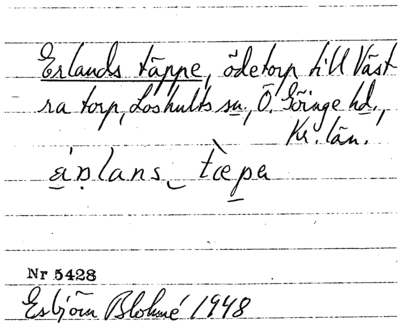 Erlands täppe, ödetorp till Väst
ra torp, Loshults sn., Ö. Göinge hd.,
Kr. län.
ä̀ṇlans‿ tæpa
Nr 5428
Esbjörn Blohmé 1948